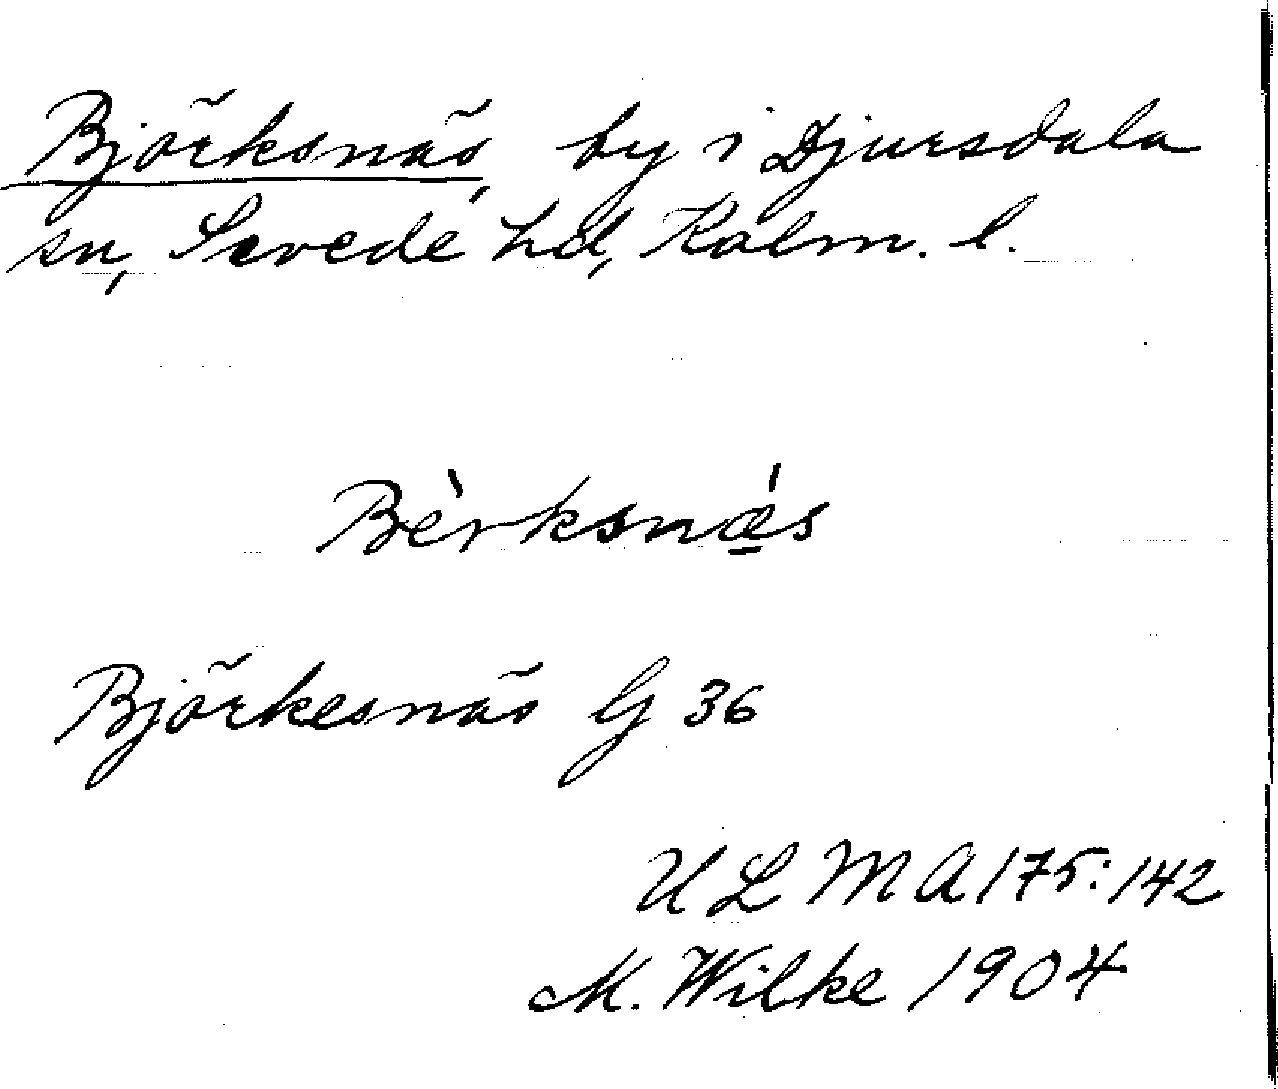 Björksnäs, by i Djursdala
sn, Sevede hd, Kalm. l.
Bèrksnǽ̱s
Björkesnäs G 36
ULMA 175:142
M. Wilke 1904